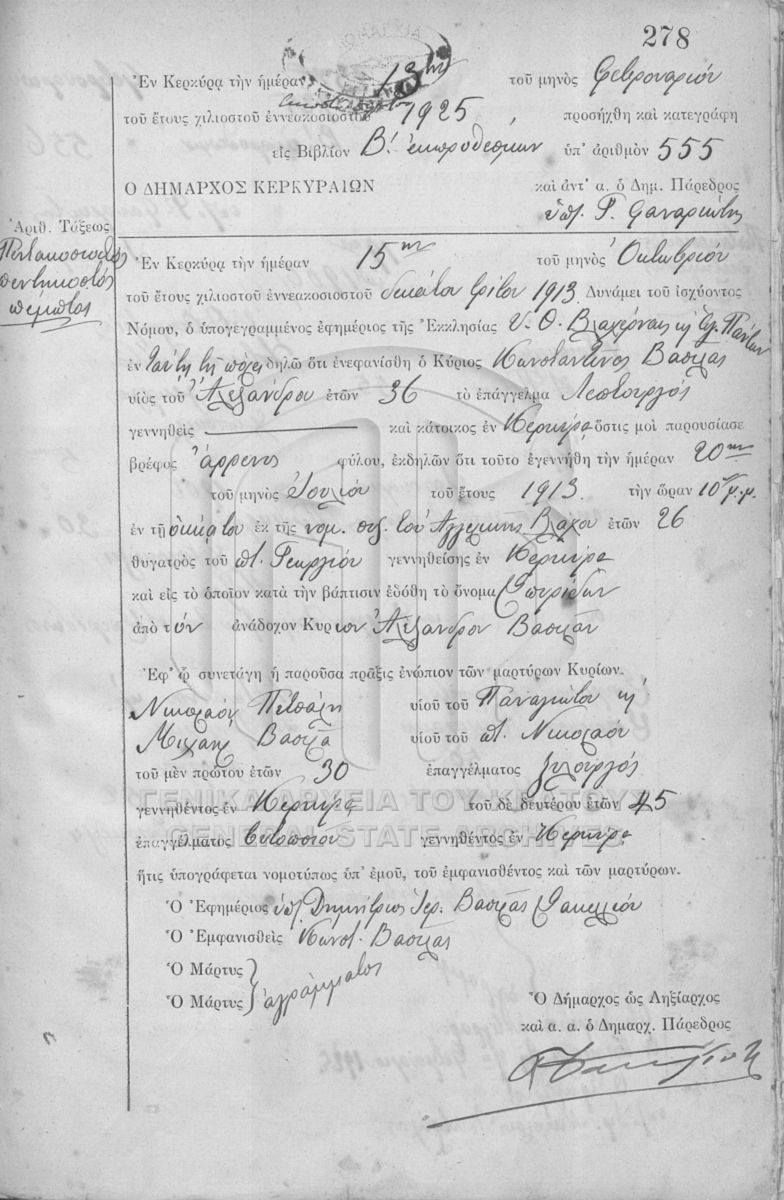 278
Ἐν Κερκύρᾳ τὴν ἡμέραν 13ην τοῦ μηνὸς Φεβρουαρίου
τοῦ ἔτους χιλιοστοῦ ἐννεακοσιοστοῦ εἰκοστοῦ 1925 προσήχθη καὶ κατεγράφη
εἰς Βιβλίον Β! ἐκπροθέσμων ὑπ' ἀριθμὸν 555
Ο ΔΗΜΑΡΧΟΣ ΚΕΡΚΥΡΑΙΩΝ καὶ ἀντ' α. ὁ Δημ. Πάρεδρος
ὑπ. Γ.
Ἀριθ. Τάξεως
Πεντακοσιοστὸς
πεντηκοστὸς
πέμπτος
Ἐν Κερκύρᾳ τὴν ἡμέραν 15ην τοῦ μηνὸς Ὀκτωβρίου
τοῦ ἔτους χιλιοστοῦ ἐννεακοσιοστοῦ δεκάτου τρίτου 1913 Δυνάμει τοῦ ἰσχύοντος
Νόμου, ὁ ὑπογεγραμμένος ἐφημέριος τῆς Ἐκκλησίας Υ. Θ. Βλαχέρνας κ Ἁγ. Πάντων
ἐν ταύτῃ τῇ πόλει δηλῶ ὅτι ἐνεφανίσθη ὁ Κύριος Κωνσταντῖνος Βασιλᾶς
υἱὸς τοῦ Ἀλεξάνδρου ἐτῶν 36 τὸ ἐπάγγελμα Λεπτουργός
γεννηθεὶς καὶ κάτοικος ἐν Κερκύρᾳ ὅστις μοὶ παρουσίασε
βρέφος ἄρρενος φύλου, ἐκδηλῶν ὅτι τοῦτο ἐγεννήθη τὴν ἡμέραν 20ην
τοῦ μηνὸς Ἰουλίου τοῦ ἔτους 1913. τὴν ὥραν 10 μ.μ.
ἐν τῇ οἰκίᾳ του ἐκ τῆς νομ. συζ. του Ἀγγελικῆς Βλάχου ἐτῶν 26
θυγατρὸς τοῦ ποτ. Γεωργίου γεννηθείσης ἐν Κερκύρᾳ
καὶ εἰς τὸ ὁποῖον κατὰ τὴν βάπτισιν ἐδόθη τὸ ὄνομα Σπυρίδων
ἀπὸ τόν ἀνάδοχον Κύριον Ἀλέξανδρον Βασιλᾶν
Ἐφ' ᾧ συνετάγη ἡ παροῦσα πρᾶξις ἐνώπιον τῶν μαρτύρων Κυρίων.
Νικολάου Πετσάλη υἱοῦ τοῦ Παναγιώτου κ
Μιχαὴλ Βασιλᾶ υἱοῦ τοῦ ποτ. Νικολάου
τοῦ μὲν πρώτου ἐτῶν 30 ἐπαγγέλματος ξυλουργός
γεννηθέντος ἐν Κερκύρᾳ τοῦ δὲ δευτέρου ἐτῶν 45
ἐπαγγέλματος γεννηθέντος ἐν Κερκύρᾳ
ἥτις ὑπογράφεται νομοτύπως ὑπ' ἐμοῦ, τοῦ ἐμφανισθέντος καὶ τῶν μαρτύρων.
Ὁ Ἐφημέριος ὑπ. Δημήτριος Ἱερ. Βασιλᾶς Σακελλίου
Ὁ Ἐμφανισθεὶς Κωνστ. Βασιλᾶς
Ὁ Μάρτυς
Ὁ Μάρτυς ἀγράμματος
Ὁ Δήμαρχος ὡς Ληξίαρχος
καὶ α. α. ὁ Δημαρχ. Πάρεδρος
ΓΕΝΙΚΑ ΑΡΧΕΙΑ ΤΟΥ ΚΡΑΤΟΥΣ
GENERAL STATE ARCHIVES